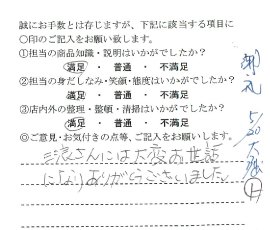 誠にお手数とは存じますが、下記に該当する項目に
〇印のご記入をお願い致します。
①担当の商品知識・説明はいかがでしたか?
満足 ・ 普通 ・ 不満足
②担当の身だしなみ・笑顔・態度はいかがでしたか?
満足 ・ 普通 ・ 不満足
③店内外の整理・整頓・清掃はいかがでしたか?
満足 ・ 普通 ・ 不満足
◎ご意見・お気付きの点等、ご記入をお願します。
三浪さんには大変お世話
になりありがとうございました
5/20